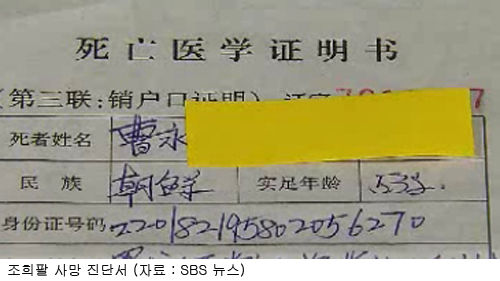 死亡医学证明书
(第三联:销户口证明)
死者姓名 曹永
民族 朝鲜 实足年龄 53岁
身份证号码 220182195802056270
조희팔 사망 진단서 (자료 : SBS 뉴스)